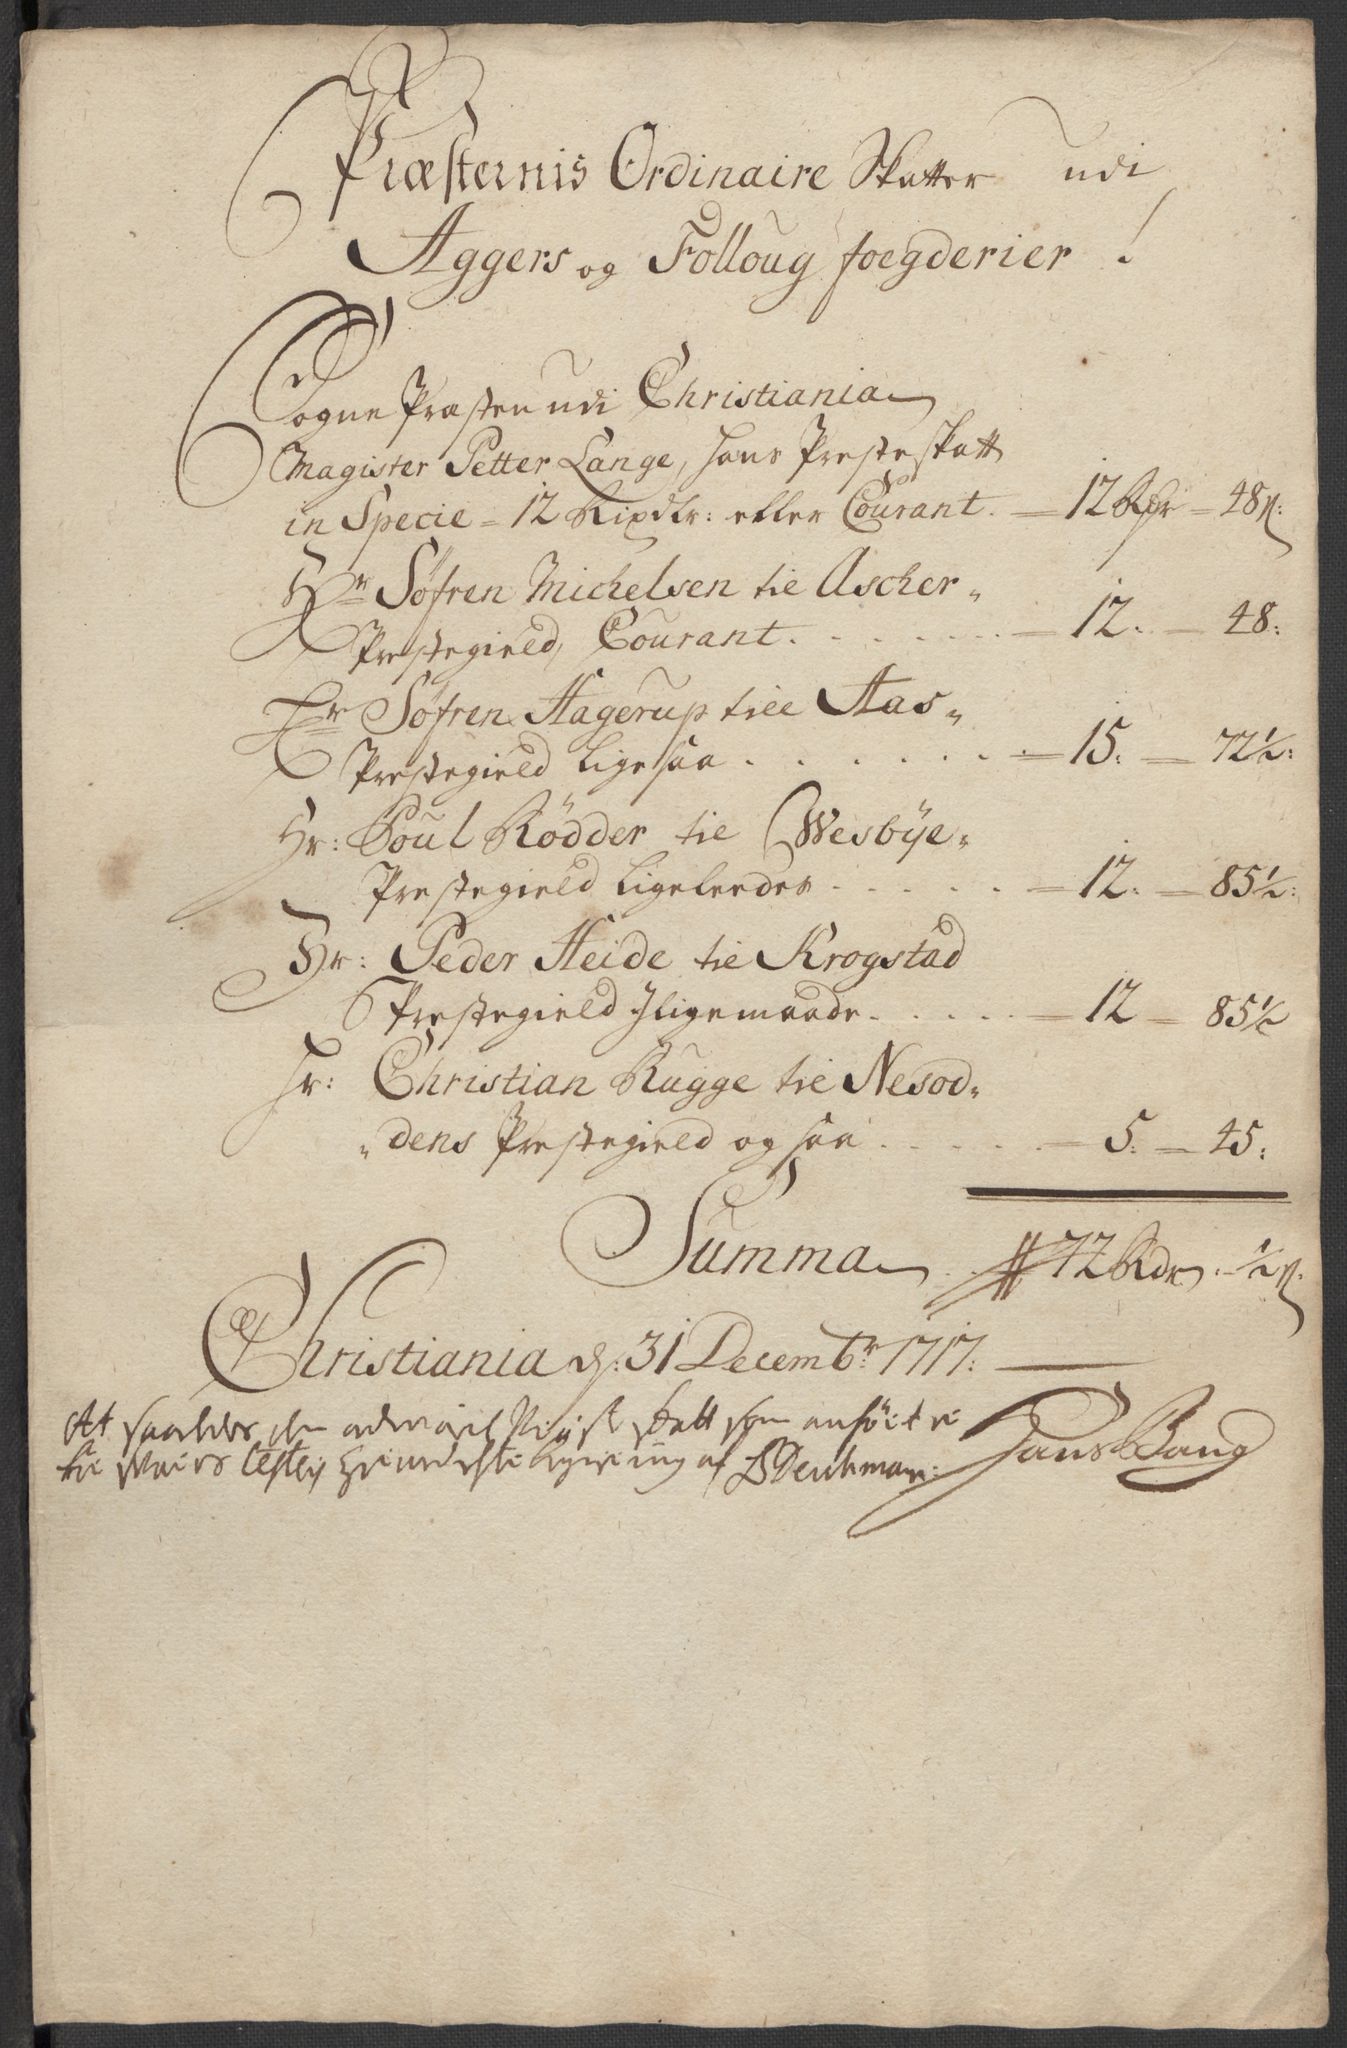 Præsternis Ordinaire Skatter udi
Aggers og Folloug foegderier
Sogne Præsten udi Christiania
Magister Petter Lange, hans Presteskatt
in Specie - 12 Rixdlr: eller Courant. — 12 Rdr — 48 ß:
Hr Søfren Michelsen till Ascher-
Prestegield, Courant. — 12. — 48:
Hr Søfren Hagerup till Aas-
Prestegield Ligesaa — 15. — 72½:
Hr: Poul Rödder till Wesbÿe-
Prestegield ligeleedes — 12. — 85½:
Hr: Peder Heide till Krogstad
Prestegield Jligemaade. — 12 — 85½
Hr: Christian Rugge till Nesod-
-dens Prestegield og saa — 5. — 45:
Summa # 72 Rdr. ½ ß.
Christiania d: 31 Decembr 1717:
At saaledes den skatt som anført
af Deichman:
Hans Bang